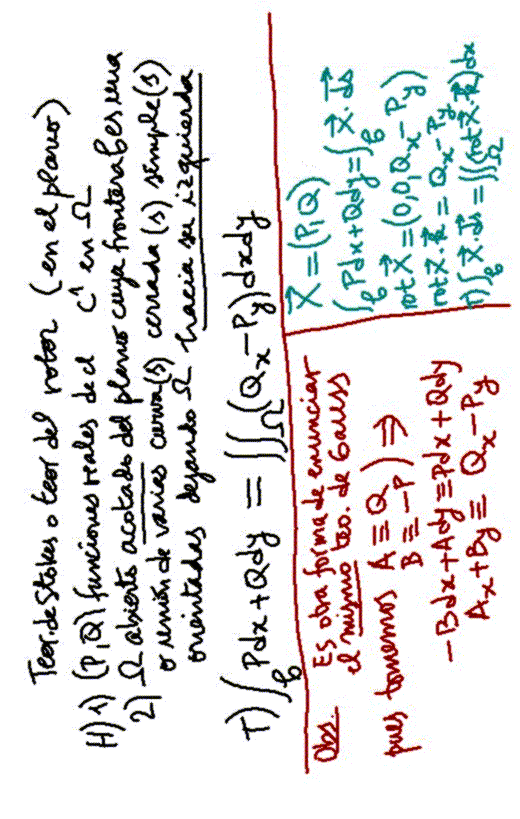 Teor. de Stokes o teor del rotor (en el plano)
H) 1) (P,Q) funciones reales de cl C¹ en Ω
2) Ω abierto acotado del plano cuya frontera b es una
o reunión de varias curva(s) cerrada(s) simple(s)
orientadas dejando Ω hacia su izquierda
T) ∫_b Pdx+Qdy = ∬_Ω (Q_x − P_y)dxdy
Obs. Es otra forma de enunciar
el mismo teo. de Gauss
pues tomemos A ≡ Q
B ≡ −P) ⇒
−Bdx+Ady ≡ Pdx+Qdy
A_x+B_y ≡ Q_x − P_y
X⃗ = (P,Q)
∫_b Pdx+Qdy = ∫_b X⃗.ds⃗
rot X⃗ = (0,0,Q_x−P_y)
rot X⃗.k⃗ = Q_x−P_y
T) ∫_b X⃗.ds⃗ = ∬_Ω (rot X⃗.k⃗)dx